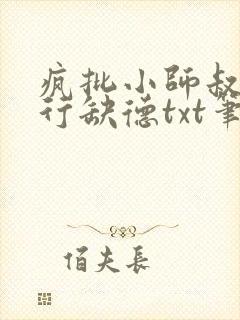 疯批小師叔
行缺德txt筆
佰夫長